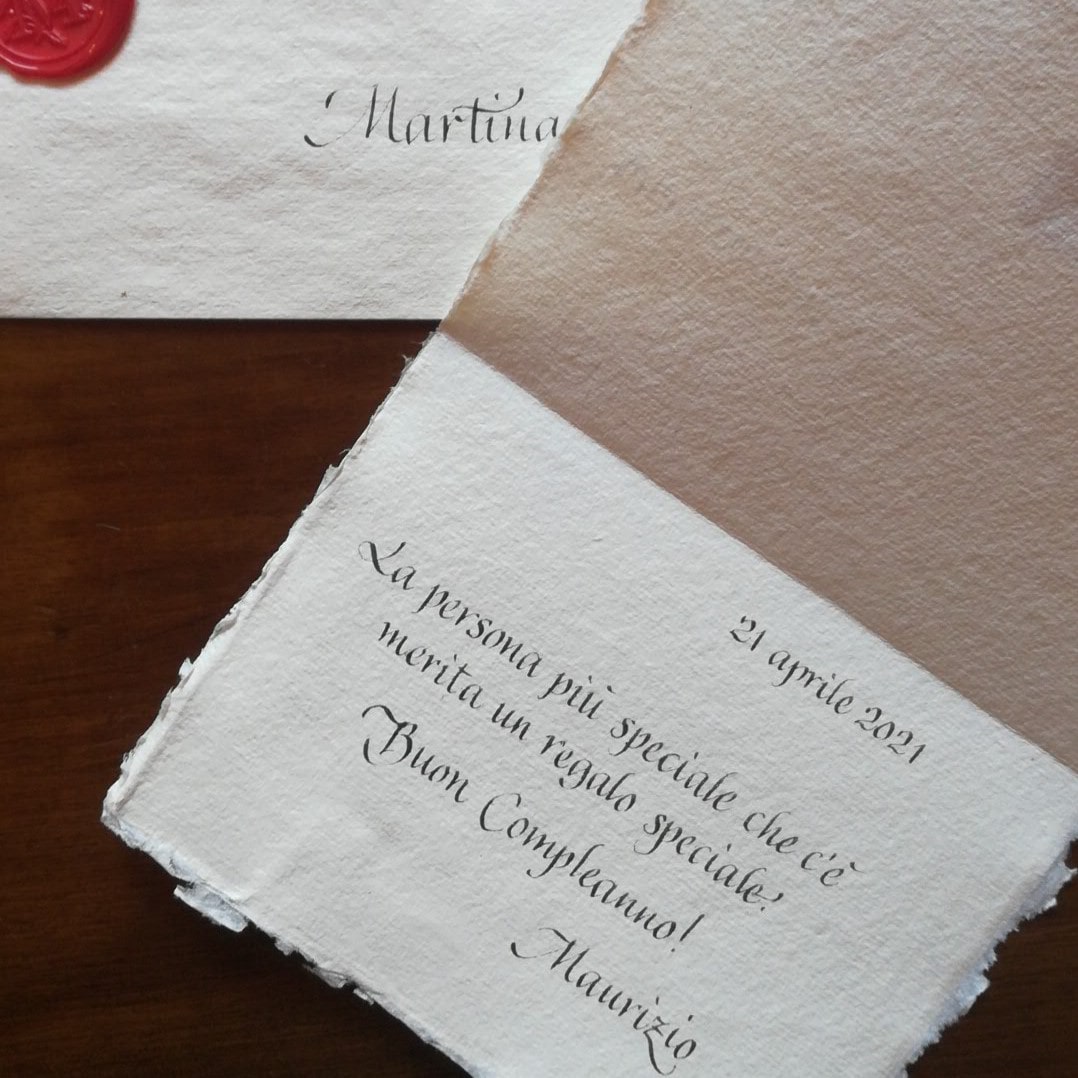 Martina
21 aprile 2021
La persona più speciale che c'è
merita un regalo speciale!
Buon Compleanno!
Maurizio